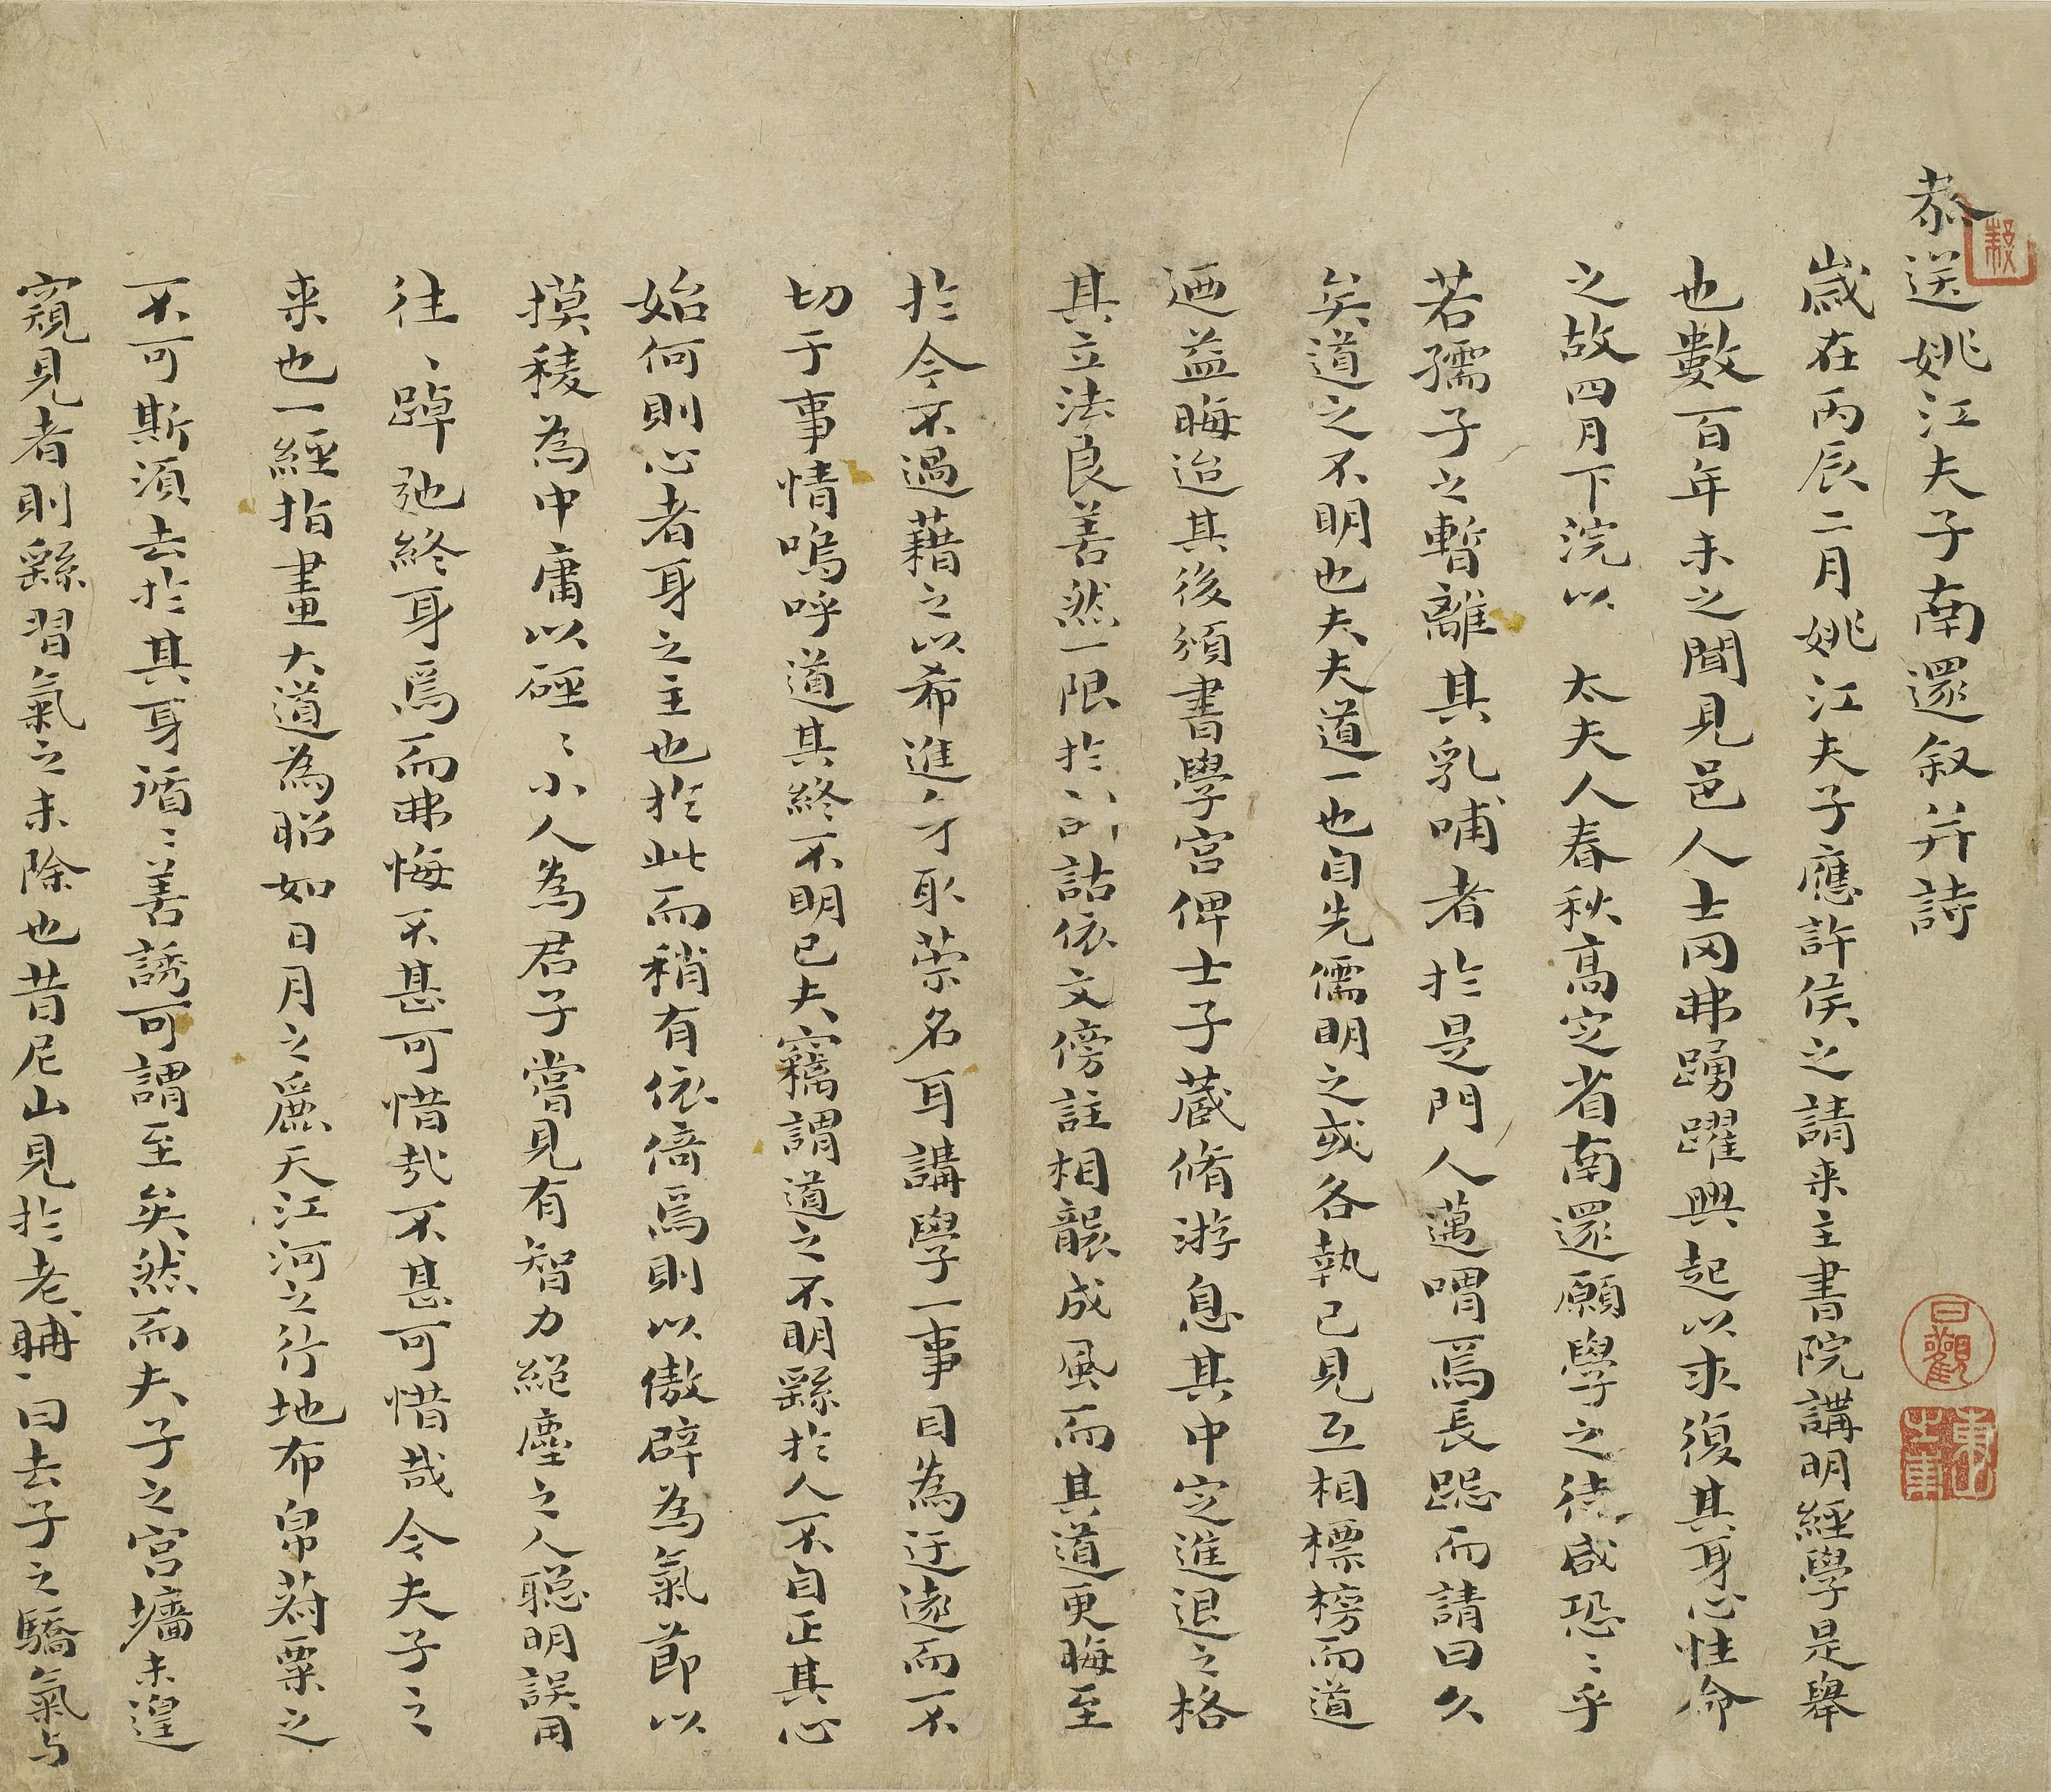 恭送姚江夫子南還叙并詩
歲在丙辰二月姚江夫子應許侯之請来主書院講明經學是舉
也數百年未之聞見邑人士罔弗踴躍興起以求復其身心性命
之故四月下浣以 太夫人春秋高定省南還願學之徒咸恐〻乎
若孺子之暫離其乳哺者於是門人邁喟焉長跽而請曰久
矣道之不明也夫夫道一也自先儒明之或各執已見互相標榜而道
迺益晦迨其後頒書學宮俾士子藏脩游息其中定進退之格
其立法良善然一限於訓詁依文傍註相襲成風而其道更晦至
於今不過藉之以希進身取榮名耳講學一事目為迂遠而不
切于事情嗚呼道其終不明已夫竊謂道之不明繇於人不自正其心
始何則心者身之主也於此而稍有依倚焉則以傲辟為氣節以
摸稜為中庸以硜〻小人為君子嘗見有智力絕塵之人聰明誤用
往〻踔弛終身焉而弗悔不甚可惜哉不甚可惜哉今夫子之
来也一經指畫大道為昭如日月之麗天江河之行地布帛菽粟之
不可斯須去於其身循〻善誘可謂至矣然而夫子之宮墻未遑
窺見者則繇習氣之未除也昔尼山見於老耼〻曰去子之驕氣与
日觀